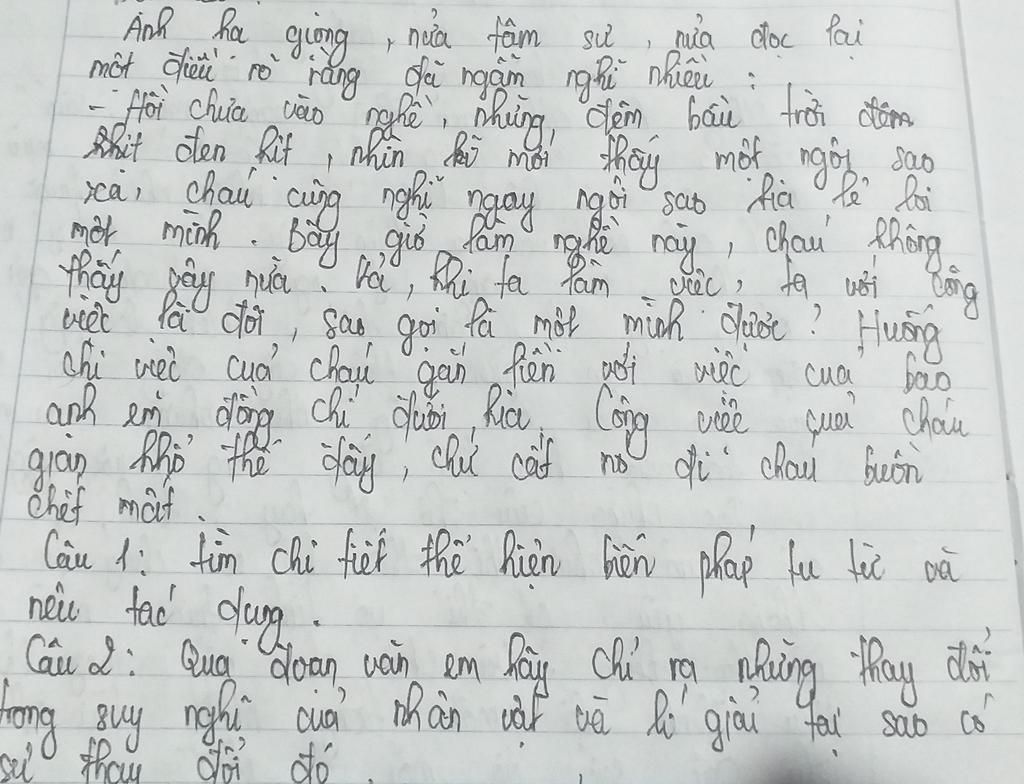 Anh hạ giọng, nửa tâm sự, nửa đọc lại
một điều rõ ràng đã ngẫm nghĩ nhiều:
- Hồi chưa vào nghề, những đêm bầu trời đêm
khịt đen kịt, nhìn kĩ mới thấy một ngôi sao
xa, cháu cũng nghĩ ngay ngôi sao kia lẻ loi
một mình. Bây giờ làm nghề này, cháu không
thấy vậy nữa. Vả, khi ta làm việc, ta với công
việc là đôi, sao gọi là một mình được? Huống
chi việc của cháu gắn liền với việc của bao
anh em đồng chí dưới kia. Công việc của cháu
gian khổ thế đấy, chứ cất nó đi cháu buồn
chết mất.
Câu 1: tìm chi tiết thể hiện biện pháp tu từ và
nêu tác dụng.
Câu 2: Qua đoạn văn em hãy chỉ ra những thay đổi
trong suy nghĩ của nhân vật và lí giải tại sao có
sự thay đổi đó.